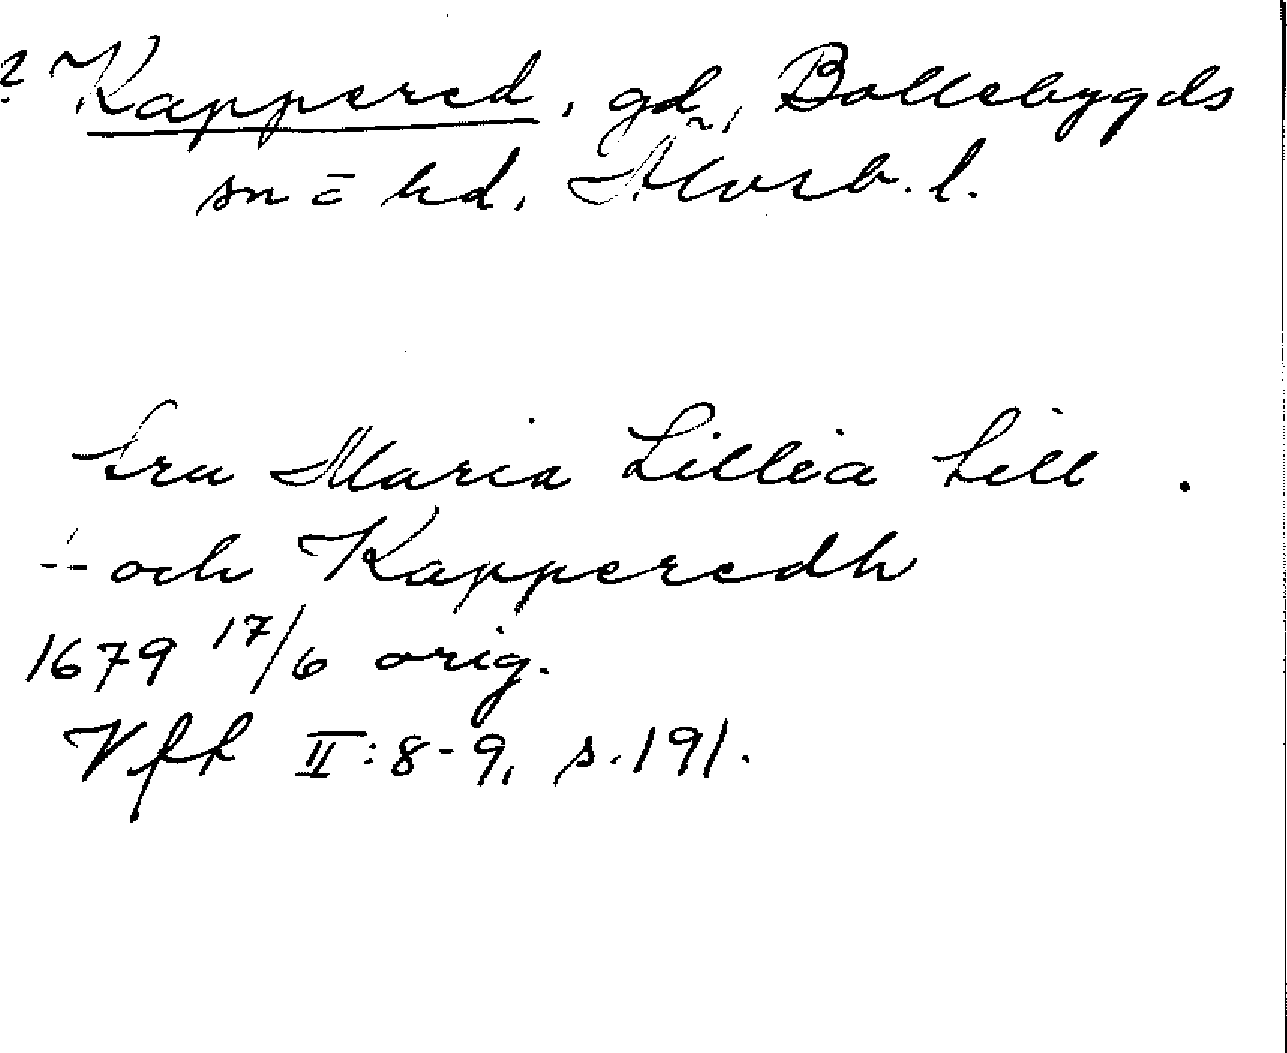 ? Kappered, gd, Bollebygds
sn = hd, Älvsb. l.
Fru Maria Lillia till .
-- och Kapperedh
1679 17/6 orig.
Vffk II: 8-9, s. 191.